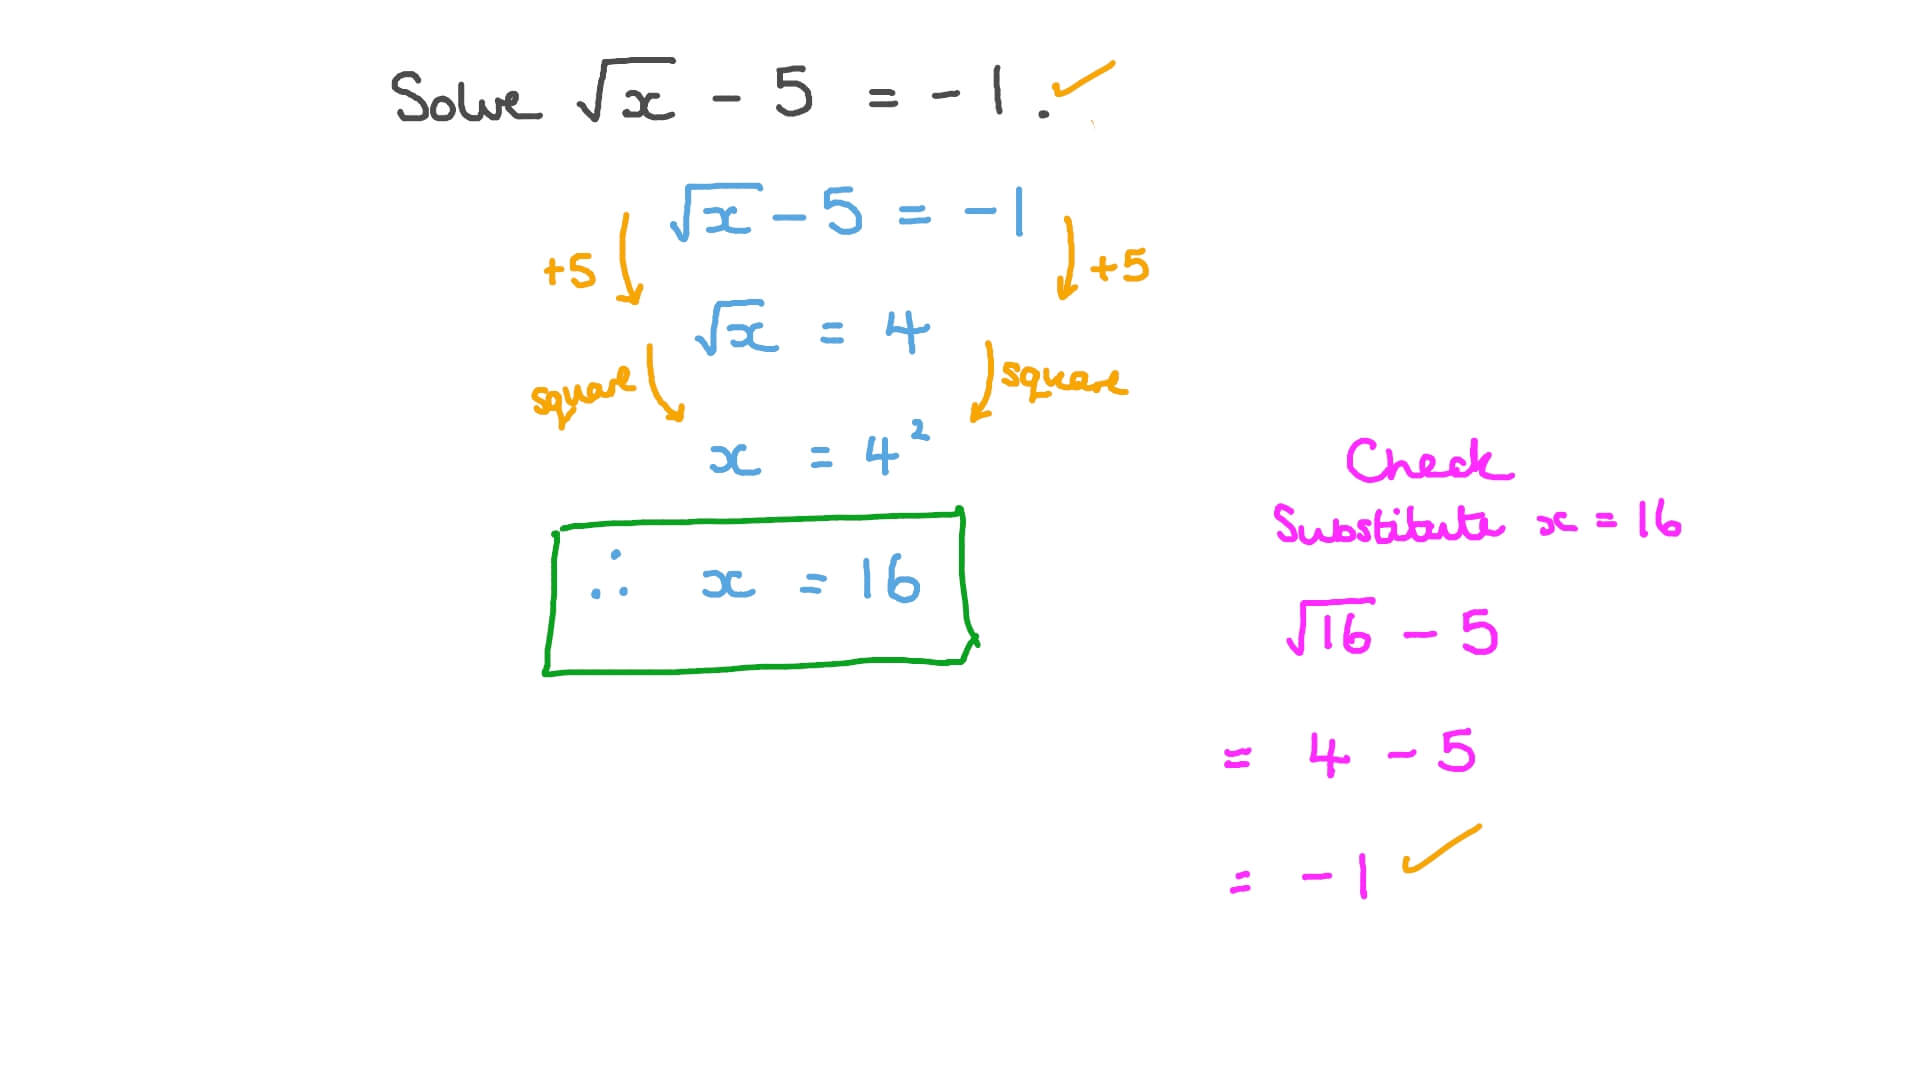 Solve √x - 5 = -1. ✓
√x - 5 = -1
+5 +5
√x = 4
square square
x = 4²
∴ x = 16
Check
Substitute x = 16
√16 - 5
= 4 - 5
= -1 ✓